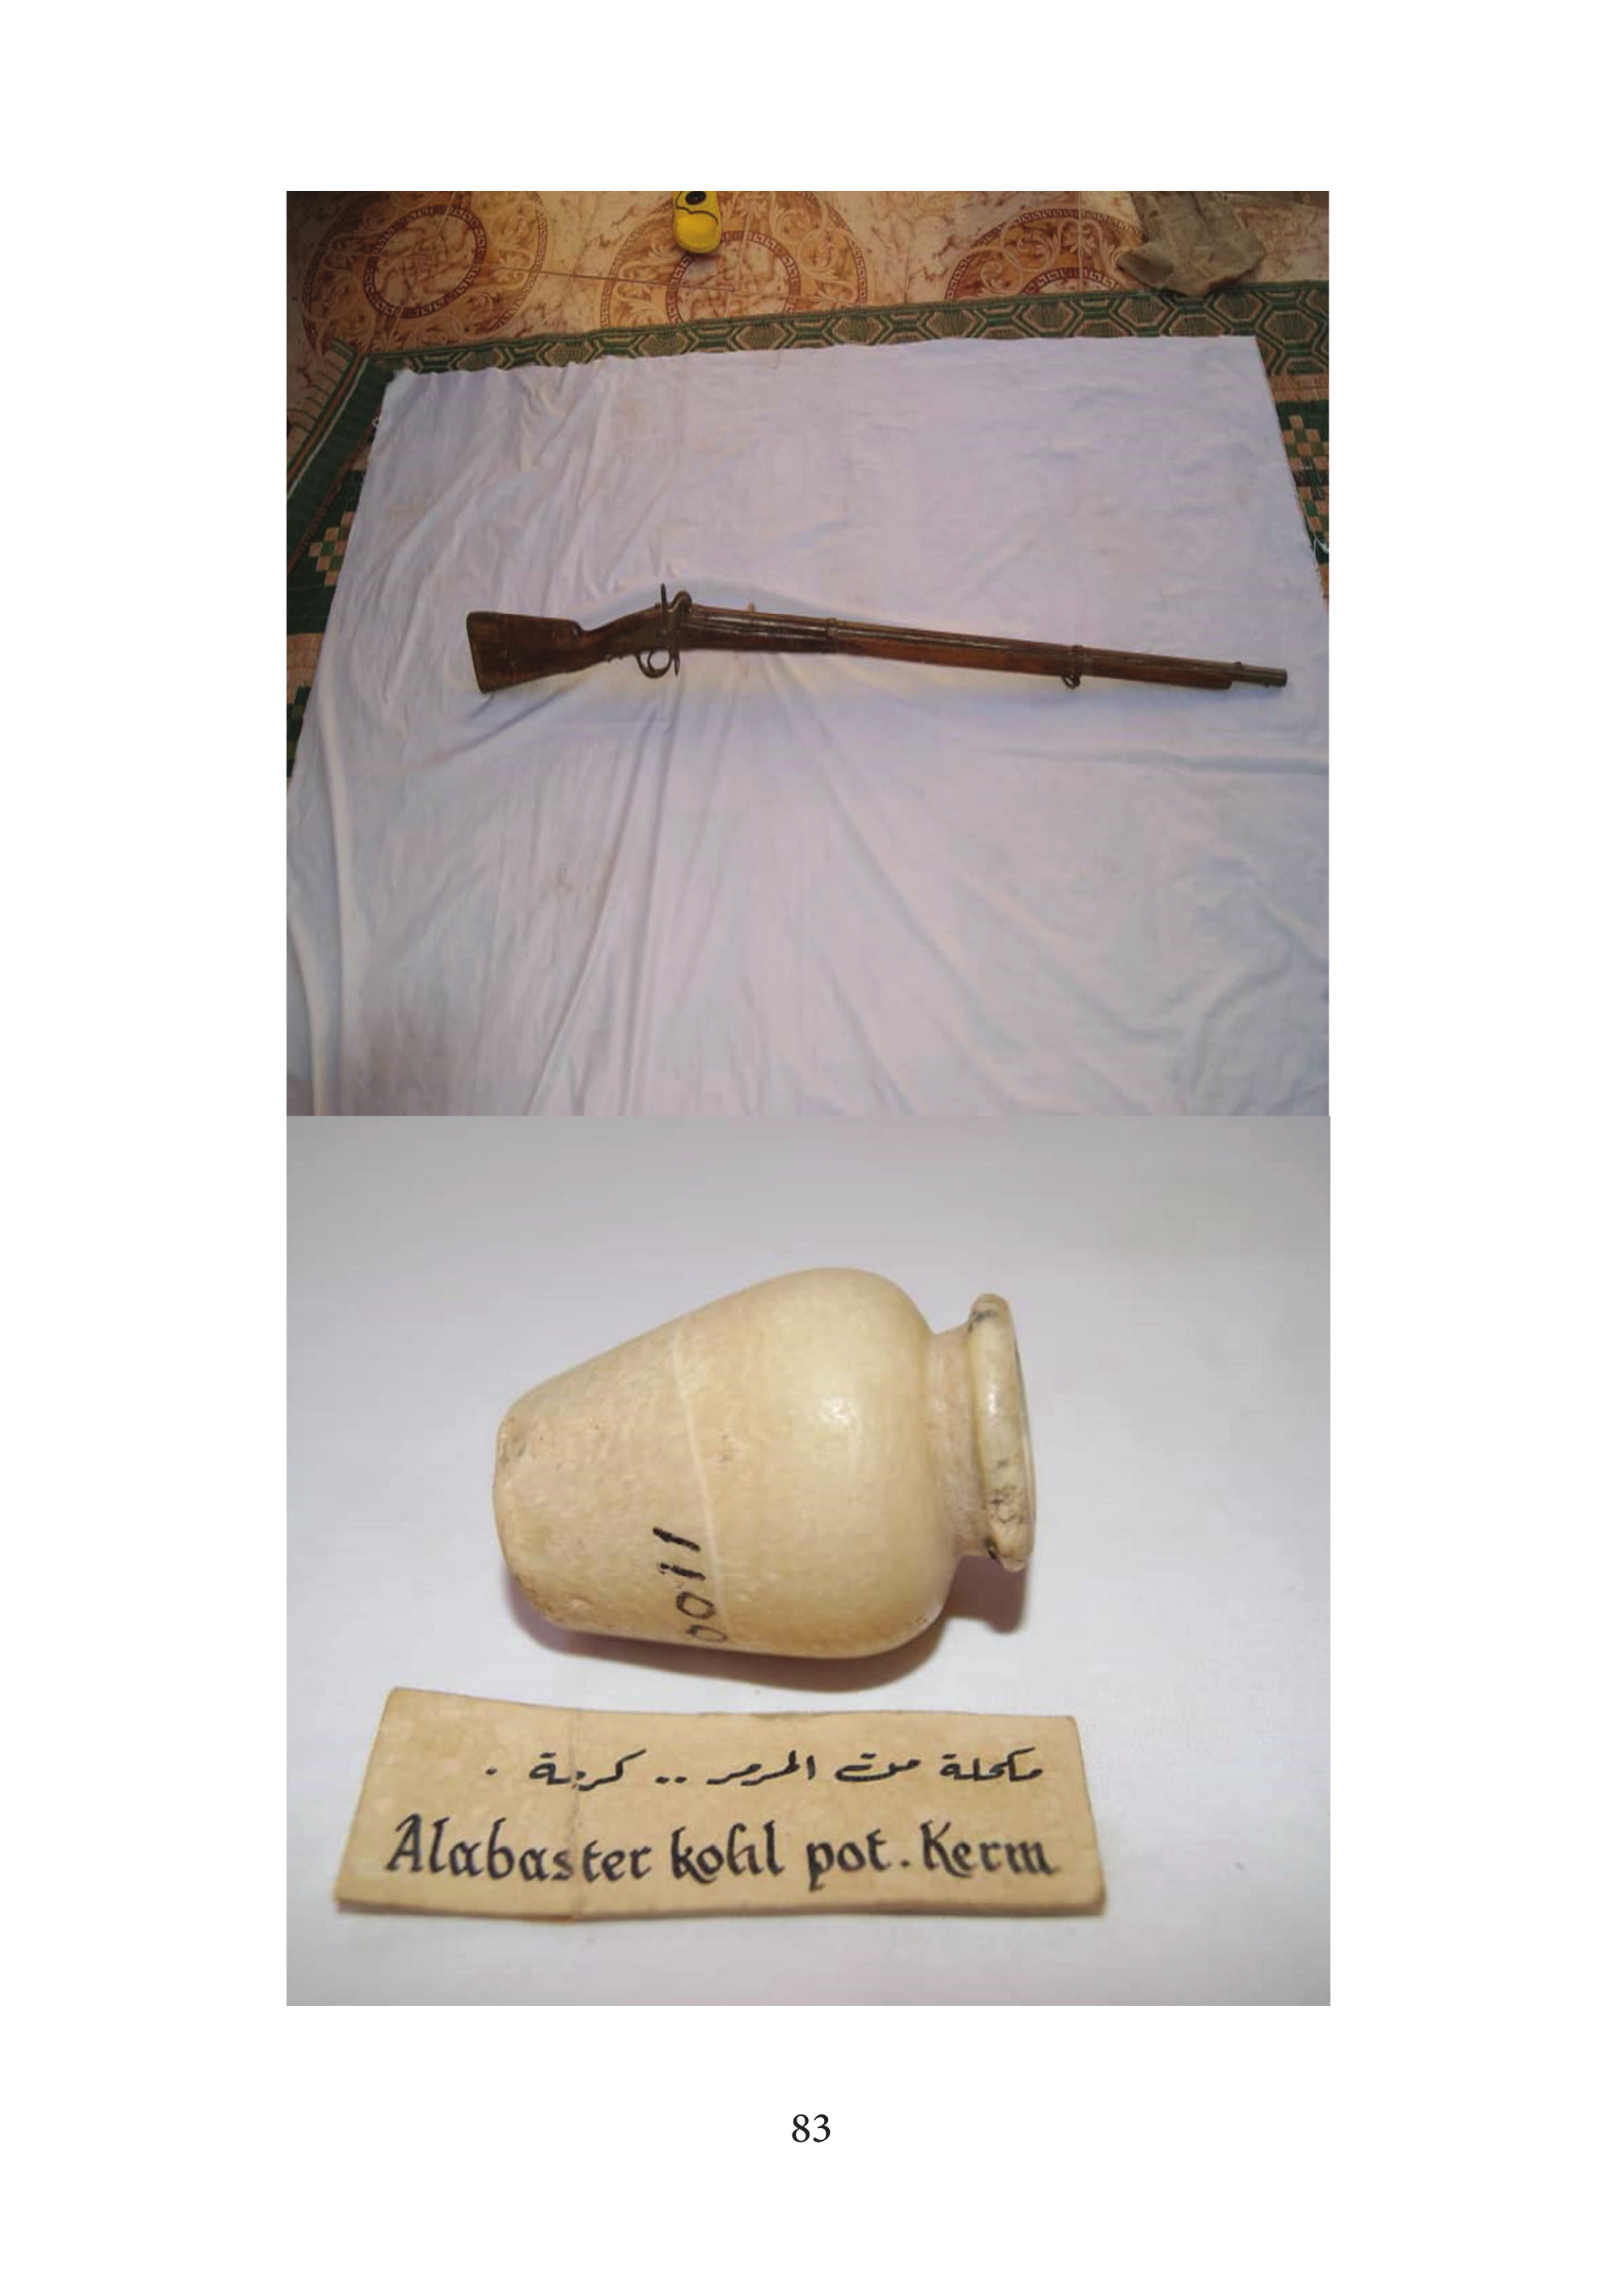 0011
مكحلة من المرمر .. كرمة .
Alabaster kohl pot. Kerm
83